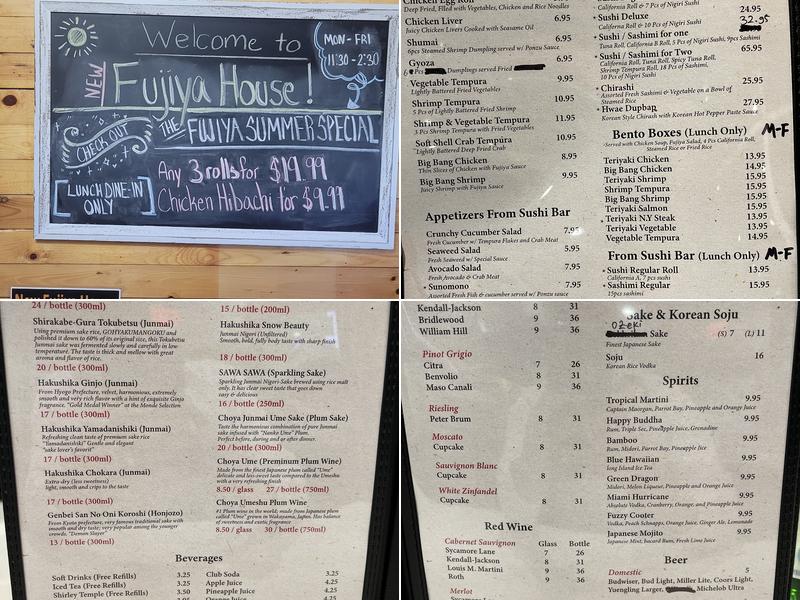 Welcome to
NEW
Fujiya House!
MON-FRI
11:30-2:30
CHECK OUT
THE FUJIYA SUMMER SPECIAL
LUNCH DINE-IN
ONLY
Any 3 rolls for $19.99
Chicken Hibachi for $9.99
Chicken Egg Roll
Deep Fried, Filled with Vegetables, Chicken and Rice Noodles
Chicken Liver 6.95
Juicy Chicken Livers Cooked with Seasame Oil
Shumai 6.95
6pcs Steamed Shrimp Dumpling served w/ Ponzu Sauce
Gyoza 6.95
6 Pcs Dumplings served Fried
Vegetable Tempura 9.95
Lightly Battered Fried Vegetables
Shrimp Tempura 10.95
5 Pcs of Lightly Battered Fried Shrimp
Shrimp & Vegetable Tempura 11.95
3 Pcs Shrimp Tempura with Fried Vegetables
Soft Shell Crab Tempura 10.95
Lightly Battered Deep Fried Crab
Big Bang Chicken 8.95
Thin Slices of Chicken with Fujiya Sauce
Big Bang Shrimp 9.95
Juicy Shrimp with Fujiya Sauce
Appetizers From Sushi Bar
Crunchy Cucumber Salad 7.95
Fresh Cucumber w/ Tempura Flakes and Crab Meat
Seaweed Salad 5.95
Fresh Seaweed w/ Special Sauce
Avocado Salad 7.95
Fresh Avocado & Crab Meat
Sunomono 7.95
Assorted Fresh Fish & cucumber served w/ Ponzu sauce
California Roll & 7 Pcs of Nigiri Sushi
24.95
Sushi Deluxe 32.95
California Roll & 10 Pcs of Nigiri Sushi
Sushi / Sashimi for one
Tuna Roll, California B Roll, 5 Pcs of Nigiri Sushi, 9pcs Sashimi
Sushi / Sashimi for Two 65.95
California Roll, Tuna Roll, Spicy Tuna Roll,
Shrimp Tempura Roll, 18 Pcs of Sashimi,
10 Pcs of Nigiri Sushi
Chirashi 25.95
Assorted Fresh Sashimi & Vegetable on a Bowl of
Steamed Rice
Hwae Dupbap 27.95
Korean Style Chirash with Korean Hot Pepper Paste Sauce
Bento Boxes (Lunch Only) M-F
Served with Chicken Soup, Fujiya Salad, 4 Pcs California Roll,
Steamed Rice or Fried Rice
Teriyaki Chicken 13.95
Big Bang Chicken 14.95
Teriyaki Shrimp 15.95
Shrimp Tempura 15.95
Big Bang Shrimp 15.95
Teriyaki Salmon 15.95
Teriyaki N.Y Steak 15.95
Teriyaki Vegetable 13.95
Vegetable Tempura 14.95
From Sushi Bar (Lunch Only) M-F
Sushi Regular Roll 13.95
California A, 7 pcs sushi
Sashimi Regular 15.95
15pcs sashimi
24 / bottle (300ml)
Shirakabe-Gura Tokubetsu (Junmai)
Using premium sake rice, GOHYAKUMANGOKU and
polished it down to 60% of its original size, this Tokubetsu
Junmai sake was fermented slowly and carefully in low
temperature. The taste is thick and mellow with great
aroma and flavor of rice.
20 / bottle (300ml)
Hakushika Ginjo (Junmai)
From Hyogo Prefecture, velvet, harmonious, extremely
smooth and very rich flavor with a hint of exquisite Ginjo
fragrance. "Gold Medal Winner" at the Monde Selection.
17 / bottle (300ml)
Hakushika Yamadanishiki (Junmai)
Refreshing clean taste of premium sake rice
"Yamadanishiki" Gentle and elegant
"sake lover's favorite"
17 / bottle (300ml)
Hakushika Chokara (Junmai)
Extra-dry (less sweetness)
light, smooth and crips to the taste
17 / bottle (300ml)
Genbei San No Oni Koroshi (Honjozo)
From Kyoto prefecture, very famous traditional sake with
smooth and dry taste; very popular among the younger
crowds, "Demon Slayer"
13 / bottle (300ml)
15 / bottle (200ml)
Hakushika Snow Beauty
Junmai Nigori (Unfiltered)
Smooth, bold, fully body taste with sharp finish
18 / bottle (300ml)
SAWA SAWA (Sparkling Sake)
Sparkling Junmai Nigori-Sake brewed using rice malt
only. It has clear sweet taste that goes down
easy & delicious
16 / bottle (250ml)
Choya Junmai Ume Sake (Plum Sake)
Taste the harmonious combination of pure Junmai
sake using Japanese plum called "Nanko Ume" Plum.
Perfect before, during and or after dinner.
20 / bottle (300ml)
Choya Ume (Preminum Plum Wine)
Made from the finest Japanese plum called "Ume"
delicate and less-sweet taste compared to the Umeshu
with a very refreshing finish
8.50 / glass 27 / bottle (750ml)
Choya Umeshu Plum Wine
#1 Plum wine in the world; made from Japanese plum
called "Ume" grown in Wakayama, Japan. Has balance
of sweetness and exotic fragrance
8.50 / glass 30 / bottle (750ml)
Beverages
Soft Drinks (Free Refills) 3.25
Iced Tea (Free Refills) 3.25
Shirley Temple (Free Refills) 3.50
Club Soda 3.25
Apple Juice 4.25
Pineapple Juice 4.25
Orange Juice 4.25
Kendall-Jackson 8 31
Bridlewood 9 36
William Hill 9 36
Pinot Grigio
Citra 7 26
Benvolio 8 31
Maso Canali 9 36
Riesling
Peter Brum 8 31
Moscato
Cupcake 8 31
Sauvignon Blanc
Cupcake 8 31
White Zinfandel
Cupcake 8 31
Red Wine
Cabernet Sauvignon Glass Bottle
Sycamore Lane 7 26
Kendall-Jackson 8 31
Louis M. Martini 9 36
Roth 9 36
Merlot
Sake & Korean Soju
Ozeki
Sake (S) 7 (L) 11
Finest Japanese Sake
Soju 16
Korean Rice Vodka
Spirits
Tropical Martini 9.95
Captain Maorgan, Parrot Bay, Pineapple and Orange Juice
Happy Buddha 9.95
Rum, Triple Sec, Pineapple Juice, Grenadine
Bamboo 9.95
Rum, Midori, Parrot Bay, Pineapple Jice
Blue Hawaiian 9.95
long Island Ice Tea
Green Dragon 9.95
Midori, Melon Liqueur, Pineapple and Orange Juice
Miami Hurricane 9.95
Absolute Vodka, Cranberry, Orange, and Pineapple Juice
Fuzzy Cooter 9.95
Vodka, Peach Schnapps, Orange Juice, Ginger Ale, Lemonade
Japanese Mojito 9.95
Japanese Mint, bacard Rum, Fresh Lime Juice
Beer
Domestic 5
Budwiser, Bud Light, Miller Lite, Coors Light,
Yuengling Larger, Michelob Ultra